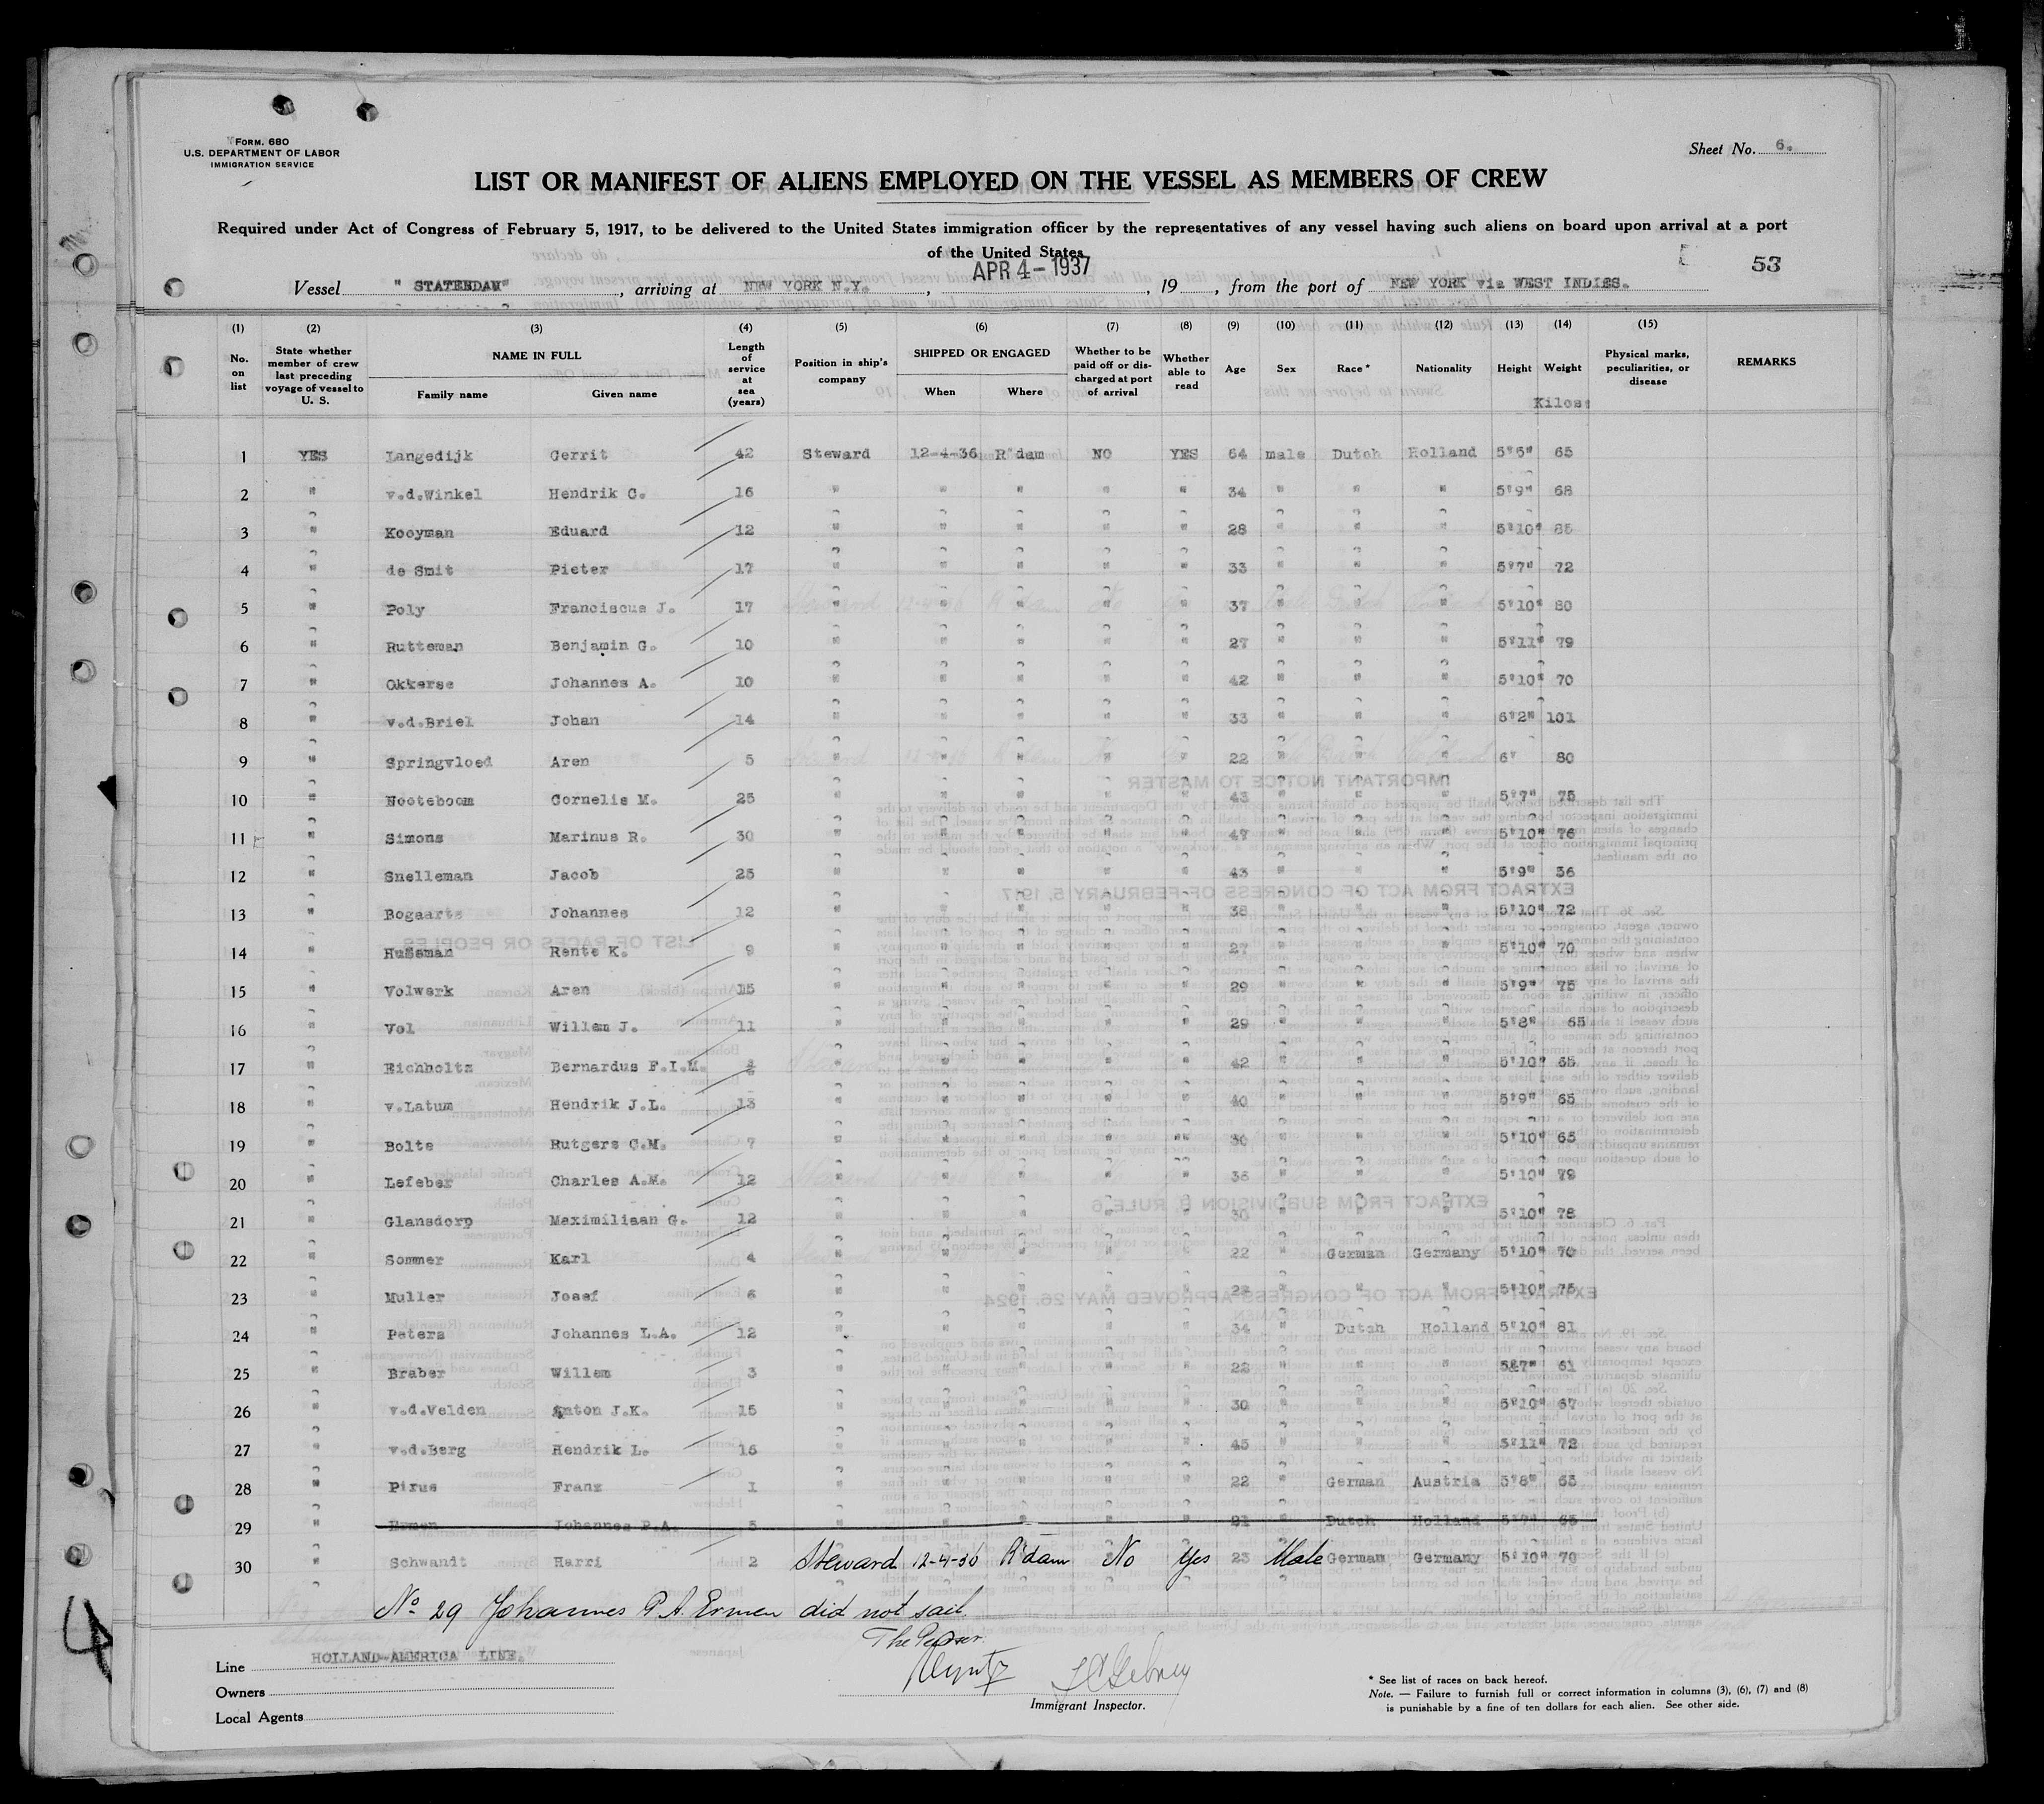 FORM. 680
U.S. DEPARTMENT OF LABOR
IMMIGRATION SERVICE
Sheet No. 6.
LIST OR MANIFEST OF ALIENS EMPLOYED ON THE VESSEL AS MEMBERS OF CREW
Required under Act of Congress of February 5, 1917, to be delivered to the United States immigration officer by the representatives of any vessel having such aliens on board upon arrival at a port
of the United States
APR 4 - 1937
53
Vessel " STATENDAM" , arriving at NEW YORK N.Y. , , 19 , from the port of NEW YORK via WEST INDIES.
(1) (2) (3) (4) (5) (6) (7) (8) (9) (10) (11) (12) (13) (14) (15)
No. on list State whether member of crew last preceding voyage of vessel to U. S. NAME IN FULL Family name Given name Length of service at sea (years) Position in ship's company SHIPPED OR ENGAGED When Where Whether to be paid off or discharged at port of arrival Whether able to read Age Sex Race * Nationality Height Weight Physical marks, peculiarities, or disease REMARKS
Kilos
1 YES Langedijk Gerrit 42 Steward 12-4-36 R'dam NO YES 64 male Dutch Holland 5'6" 65
2 " v.d.Winkel Hendrik C. 16 " " " " " 34 " " " 5'9" 68
3 " Kooyman Eduard 12 " " " " " 28 " " " 5'10" 85
4 " de Smit Pieter 17 " " " " " 33 " " " 5'7" 72
5 " Poly Franciscus J. 17 " " " " " 37 " " " 5'10" 80
6 " Rutteman Benjamin G. 10 " " " " " 27 " " " 5'11" 79
7 " Okkerse Johannes A. 10 " " " " " 42 " " " 5'10" 70
8 " v.d.Briel Johan 14 " " " " " 33 " " " 6'2" 101
9 " Springvloed Aren 5 " " " " " 22 " " " 6' 80
10 " Nooteboom Cornelis M. 25 " " " " " 43 " " " 5'7" 75
11 " Simons Marinus R. 30 " " " " " 47 " " " 5'10" 76
12 " Snelleman Jacob 25 " " " " " 43 " " " 5'9" 36
13 " Bogaarts Johannes 12 " " " " " 38 " " " 5'10" 72
14 " Huisman Rente K. 9 " " " " " 27 " " " 5'10" 70
15 " Volwerk Aren 15 " " " " " 29 " " " 5'9" 75
16 " Vol Willem J. 11 " " " " " 29 " " " 5'8" 65
17 " Eichholtz Bernardus F.I.M. " " " " " 42 " " " 5'10" 65
18 " v.Latum Hendrik J.L. 13 " " " " " 40 " " " 5'9" 65
19 " Bolte Rutgers C.M. 7 " " " " " 30 " " " 5'10" 65
20 " Lefeber Charles A.M. 12 " " " " " 36 " " " 5'10" 79
21 " Glansdorp Maximiliaan G. 12 " " " " " 30 " " " 5'10" 78
22 " Sommer Karl 4 " " " " " 22 " German Germany 5'10" 70
23 " Muller Josef 6 " " " " " 22 " " " 5'10" 75
24 " Peters Johannes L.A. 12 " " " " " 34 " Dutch Holland 5'10" 81
25 " Braber Willem 3 " " " " " 22 " " " 5'7" 61
26 " v.d.Velden Anton J.K. 15 " " " " " 30 " " " 5'10" 67
27 " v.d.Berg Hendrik L. 15 " " " " " 45 " " " 5'11" 72
28 " Pirus Franz 1 " " " " " 22 " German Austria 5'8" 63
29 " Ermen Johannes P.A. 5 21 Dutch Holland 5'9" 65
30 " Schwandt Harri 2 Steward 12-4-36 R'dam No Yes 23 Male German Germany 5'10" 70
No. 29 Johannes P.A. Ermen did not sail.
The Purser.
Line HOLLAND-AMERICA LINE.
Owners
Local Agents
Immigrant Inspector.
* See list of races on back hereof.
Note. — Failure to furnish full or correct information in columns (3), (6), (7) and (8)
is punishable by a fine of ten dollars for each alien. See other side.